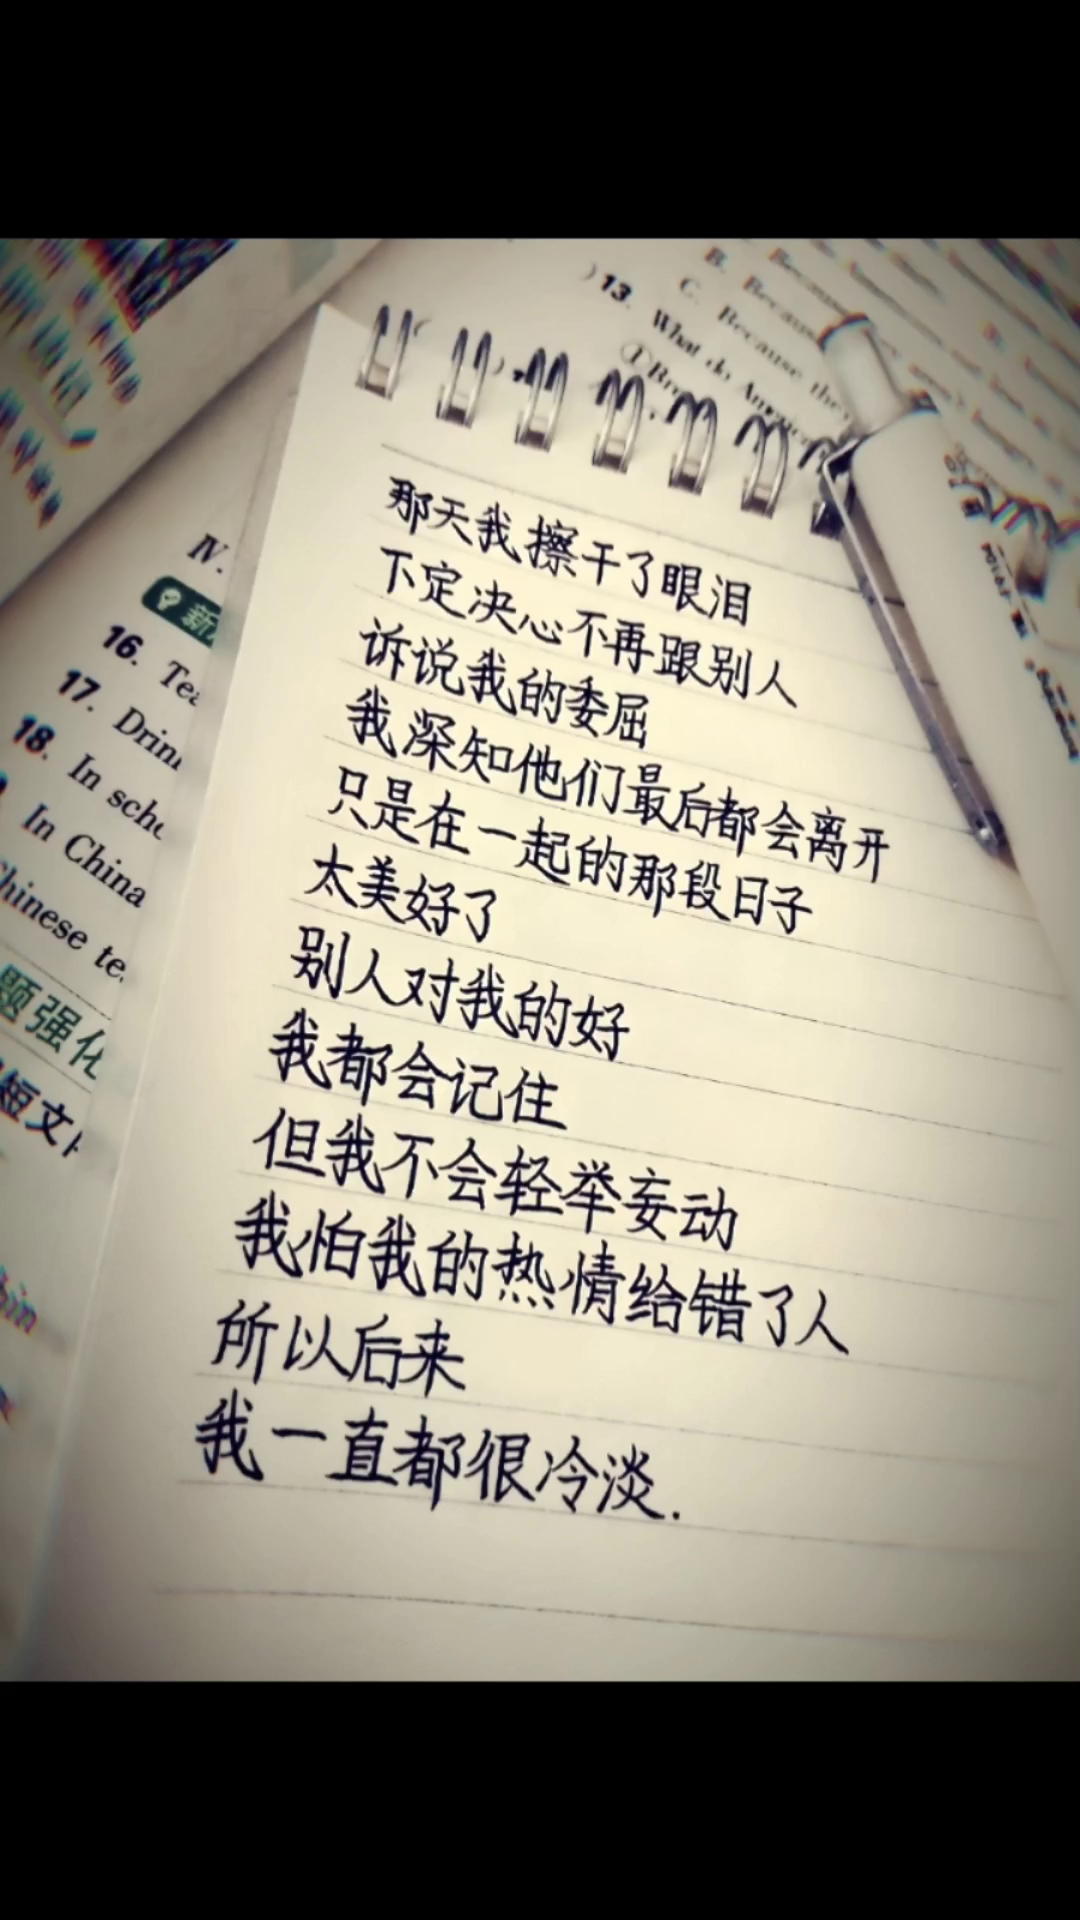 )13. What do
B. Because
C. Because the
那天我擦干了眼泪
下定决心不再跟别人
诉说我的委屈
我深知他们最后都会离开
只是在一起的那段日子
太美好了
别人对我的好
我都会记住
但我不会轻举妄动
我怕我的热情给错了人
所以后来
我一直都很冷淡.
IV.
新
16. Tea
17. Drin
18. In scho
In China
hinese te
题强化
短文